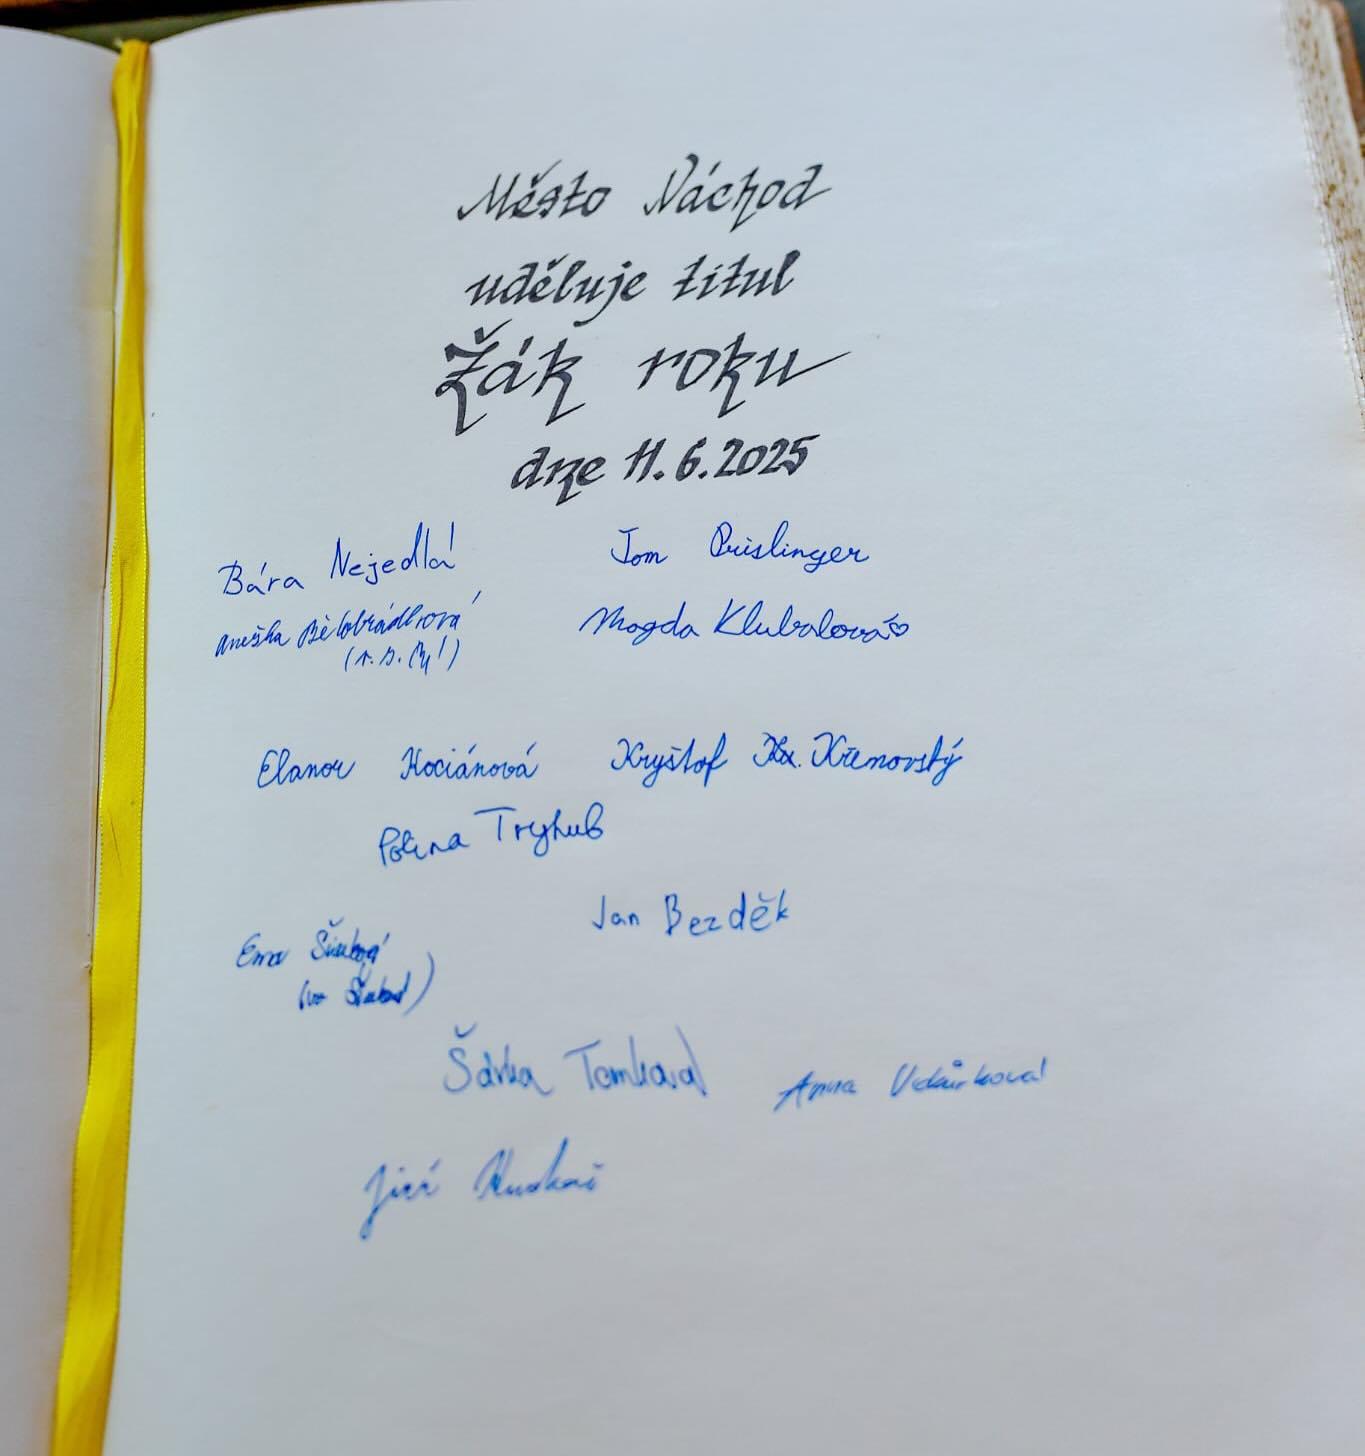 Město Náchod
uděluje titul
Žák roku
dne 11.6.2025
Bára Nejedlá
Tom Prislinger
Anežka Bělobrádková
Magda Klubalová♡
Elanor Kociánová
Kryštof Křenovský
Polina Tryhub
Jan Bezděk
Ema
Šárka Tomková
Anna
Jiří